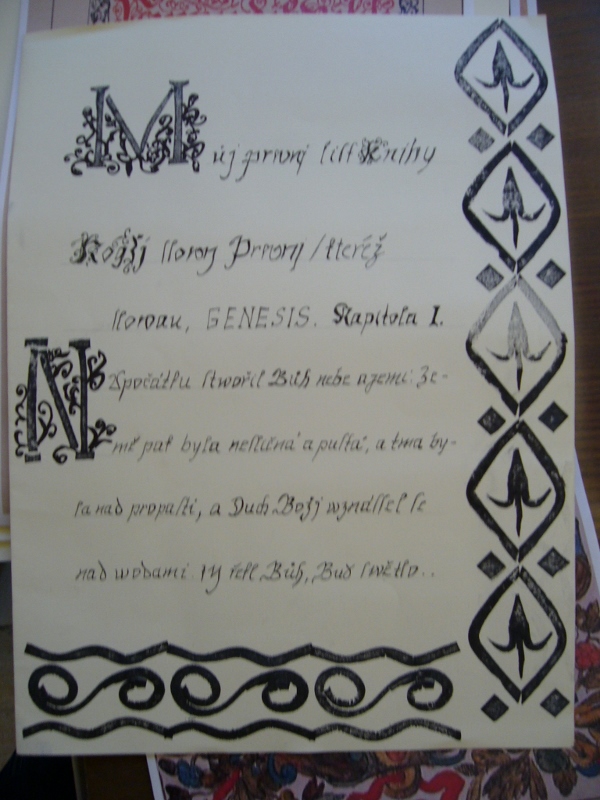 Můj prwnj liſt Knihy
Božj ſlowou Prwnj / kteréž
ſlowau, GENESIS. Kapitola I.
NApočátku ſtwořil Bůh nebe a zemi: Ze-
mě pak byla neſličná a puſtá, a tma by-
la nad propaſti, a Duch Božj wznáſſel ſe
nad wodami. Ij řekl Bůh, Buď ſwětlo..